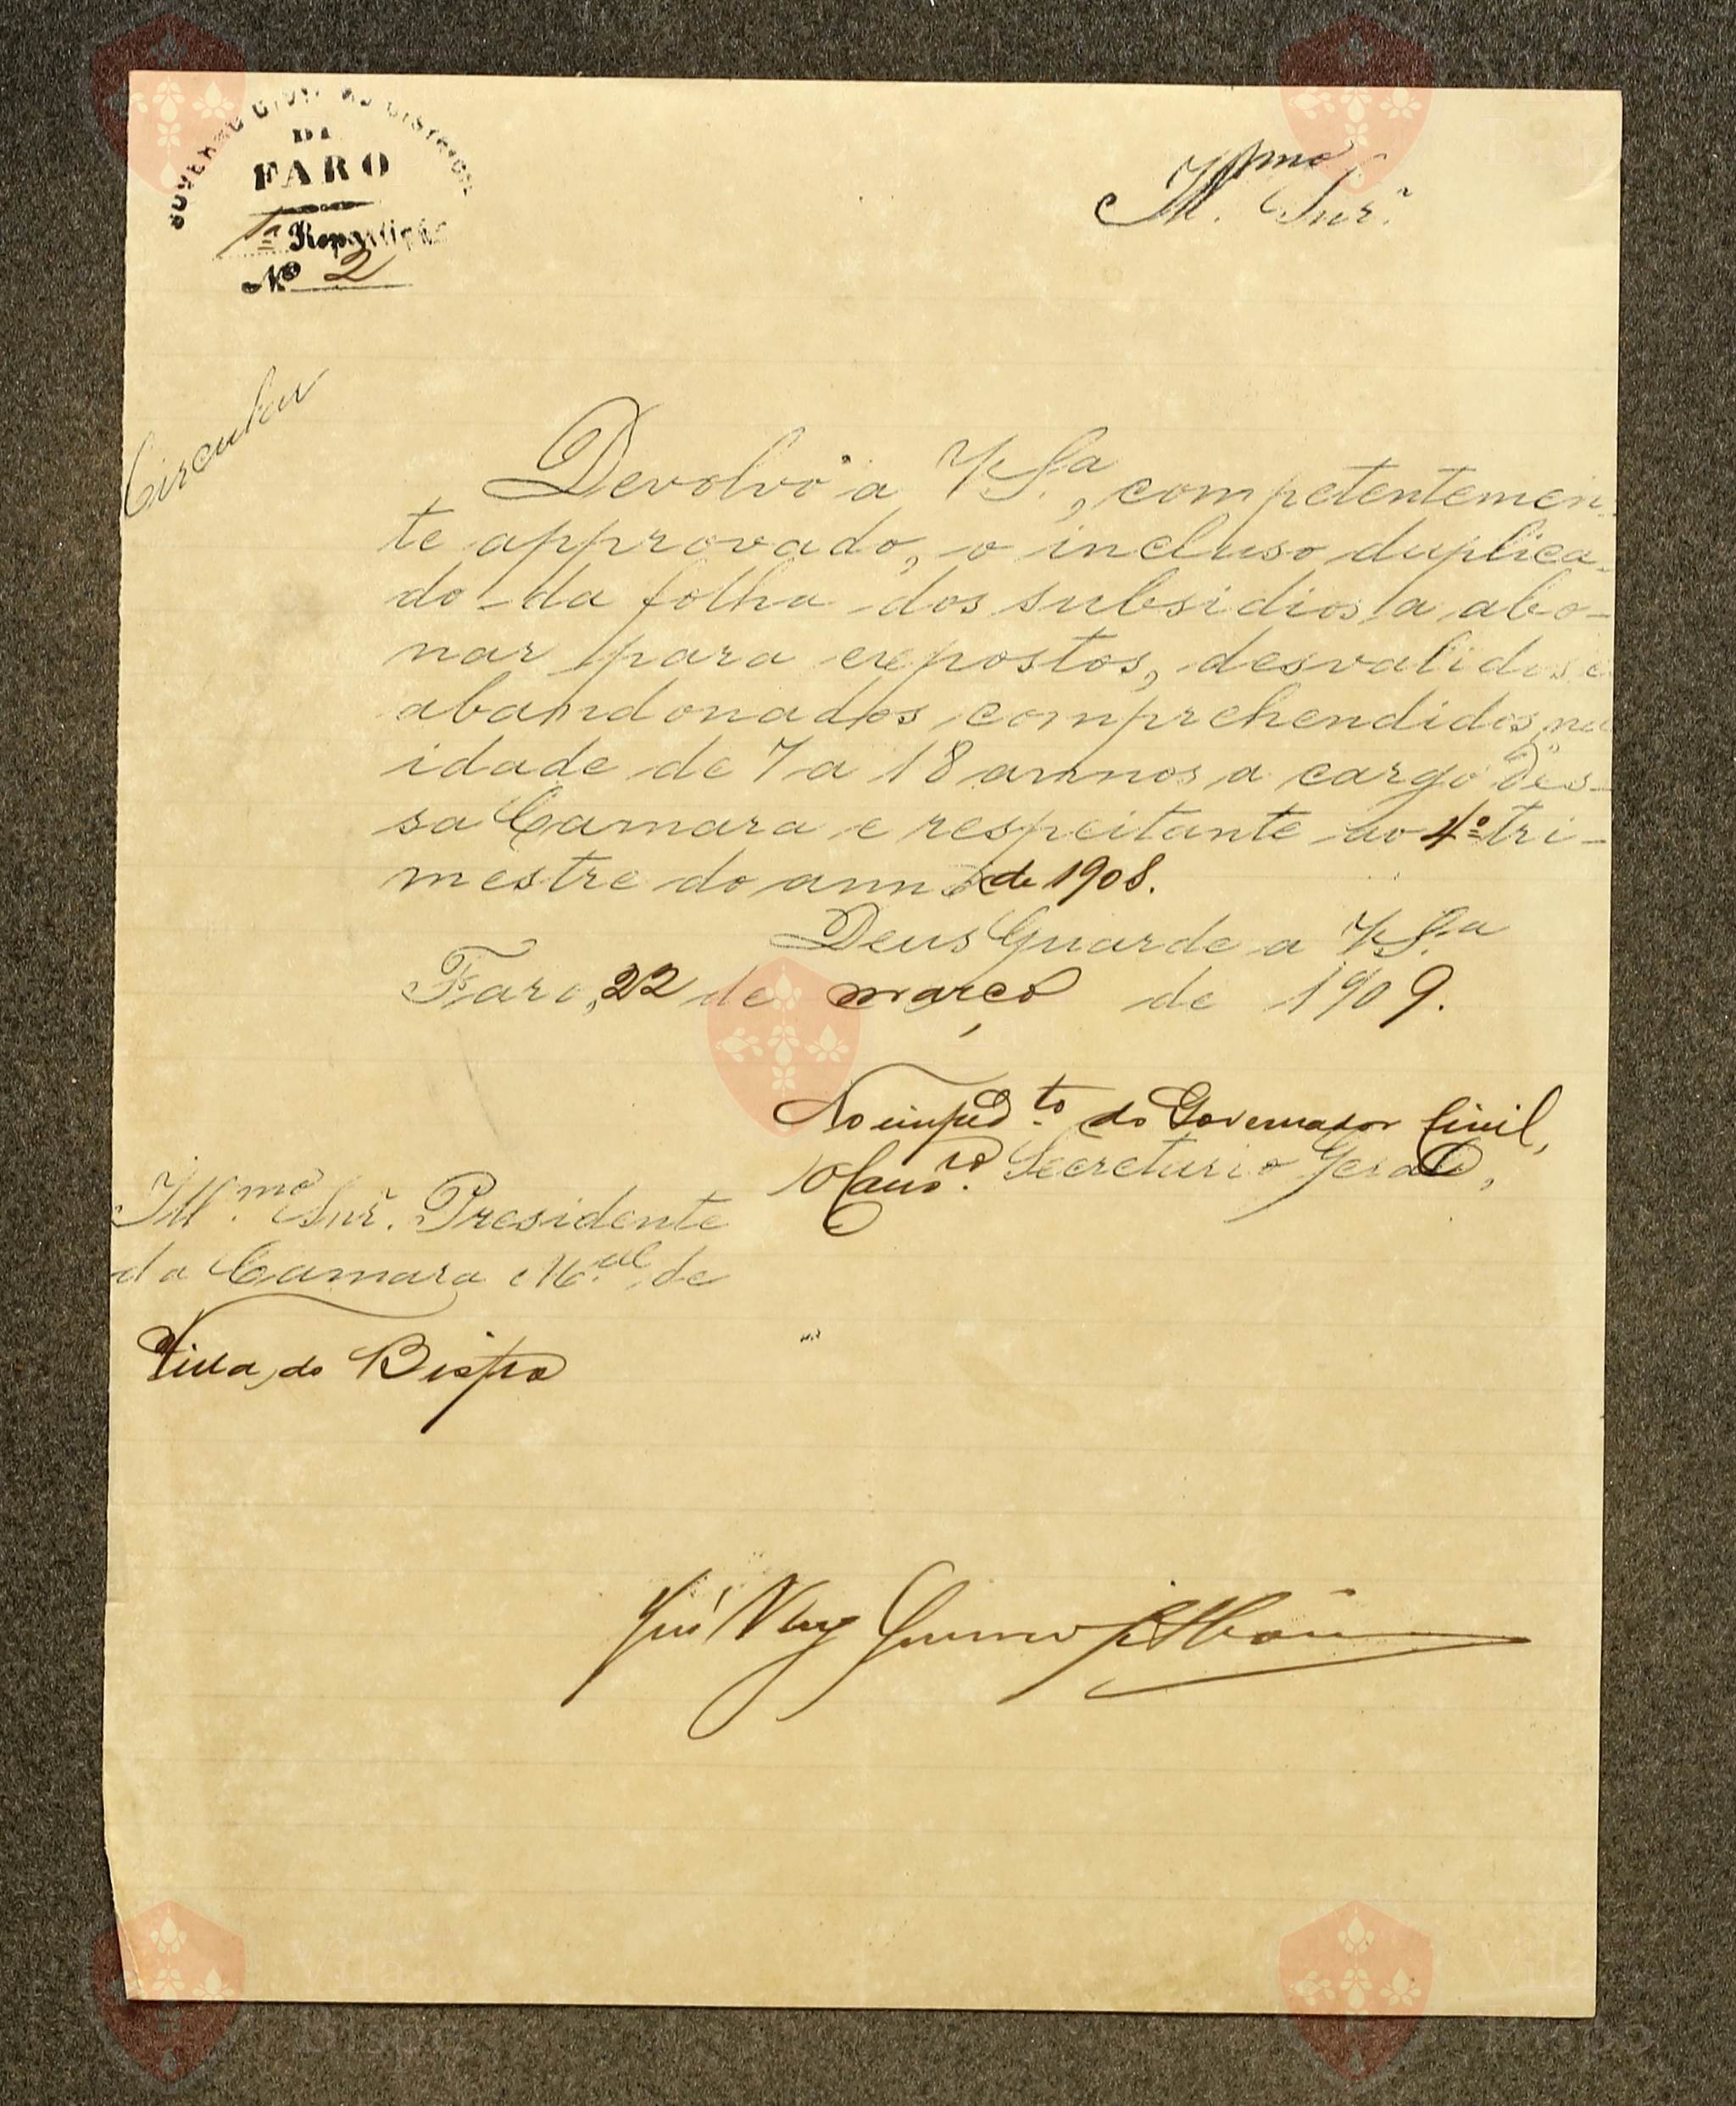 GOVERNO CIVIL DO DISTRICTO
DE
FARO
1ª Repartição
Nº 2
Illmo Snr.
Circular
Devolvo a V. S.ª, competentemen-
te approvado, o incluso duplica-
do da folha dos subsidios a abo-
nar para expostos, desvalidos e
abandonados comprehendidos na
idade de 7 a 18 annos a cargo des-
sa Camara e respeitante ao 4º tri-
mestre do anno de 1908.
Deus Guarde a V. S.ª
Faro, 22 de março de 1909.
No imped.to do Governador Civil,
O Secretario Geral,
Ill.mo Snr. Presidente
da Camara M.al de
Villa do Bispo
José Vaz